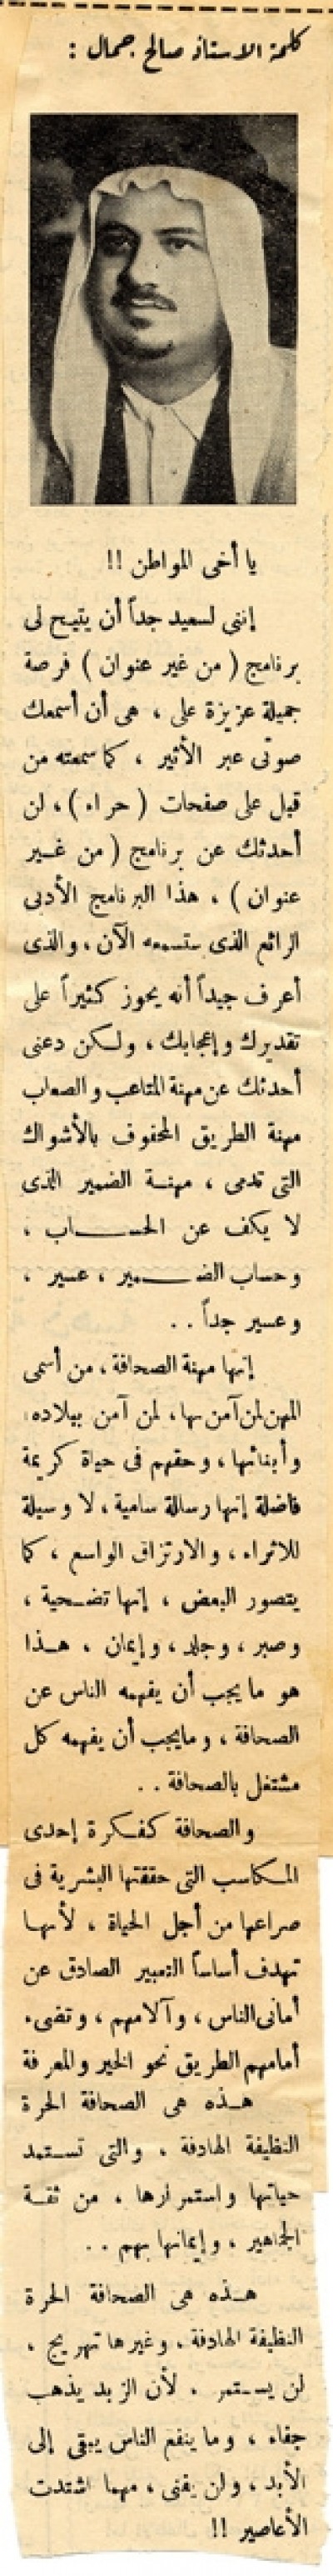 كلمة الاستاذ صالح جمال :
يا أخى المواطن !!
إننى لسعيد جداً أن يتيح لى
برنامج ( من غير عنوان ) فرصة
جميلة عزيزة على ، هى أن أسمعك
صوتى عبر الأثير ، كما سمعته من
قبل على صفحات ( حراء ) ، لن
أحدثك عن برنامج ( من غير
عنوان ) ، هذا البرنامج الأدبى
الرائع الذى ستسمعه الآن ، والذى
أعرف جيداً أنه يحوز كثيراً على
تقديرك وإعجابك ، ولكن دعنى
أحدثك عن مهنة المتاعب والصعاب
مهنة الطريق المحفوف بالأشواك
التى تدمى ، مهنة الضمير الذى
لا يكف عن الحساب ،
وحساب الضمير ، عسير ،
وعسير جداً . .
إنها مهنة الصحافة ، من أسمى
المهن لمن آمن بها ، لمن آمن ببلاده ،
وأبنائها ، وحقهم فى حياة كريمة
فاضلة إنها رسالة سامية ، لا وسيلة
للاثراء ، والارتزاق الواسع ، كما
يتصور البعض ، إنها تضحية ،
وصبر ، وجلد ، وإيمان ، هذا
هو ما يجب أن يفهمه الناس عن
الصحافة ، وما يجب أن يفهمه كل
مشتغل بالصحافة . .
والصحافة كفكرة إحدى
المكاسب التى حققتها البشرية فى
صراعها من أجل الحياة ، لأنها
تهدف أساساً التعبير الصادق عن
أمانى الناس ، وآلامهم ، وتضىء
أمامهم الطريق نحو الخير والمعرفة
هذه هى الصحافة الحرة
النظيفة الهادفة ، والتى تستمد
حياتها واستمرارها ، من ثقة
الجماهير ، وإيمانها بهم . .
هذه هى الصحافة الحرة
النظيفة الهادفة ، وغيرها تهريج ،
لن يستمر . لأن الزبد يذهب
جفاء ، وما ينفع الناس يبقى إلى
الأبد ، ولن يفنى ، مهما اشتدت
الأعاصير !!